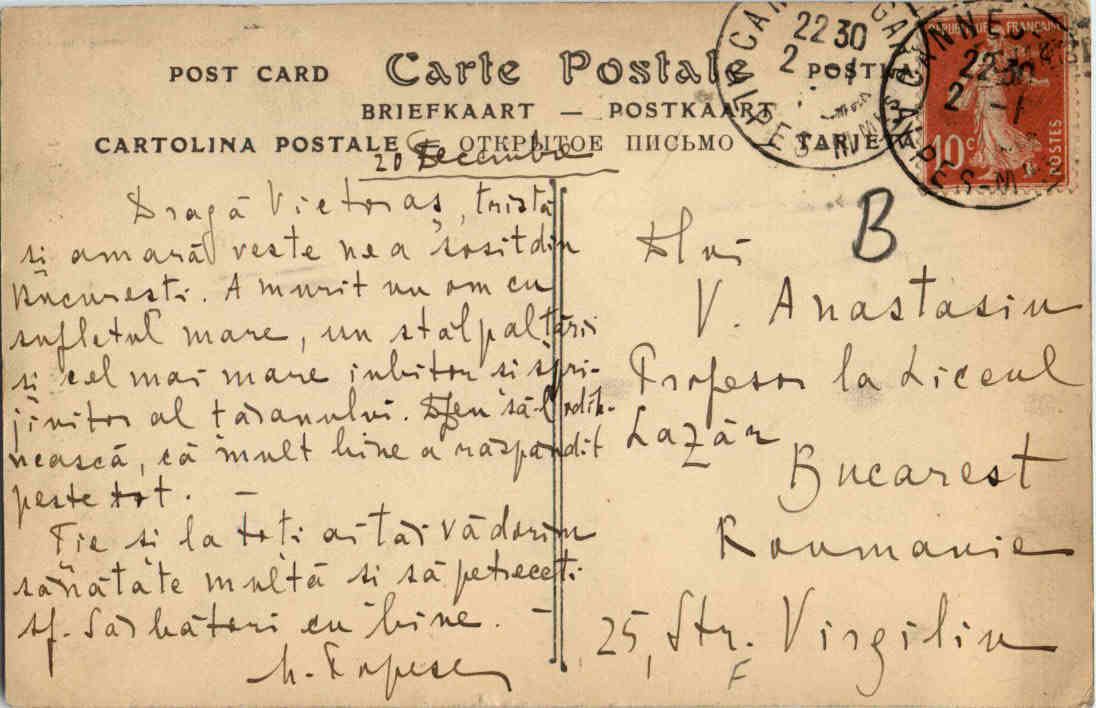 POST CARD Carte Postale
BRIEFKAART — POSTKAART
CARTOLINA POSTALE ОТКРЫТОЕ ПИСЬМО
CANNES-GARE
22 30
2 -1
ALPES-MMES
CANNES-GARE
22 30
2 -1
ALPES-M
REPUBLIQUE FRANÇAISE
10c
POSTES
20 Decembrie
Dragă Victoraș, tristă
si amară veste ne a sosit din
București. A murit un om cu
sufletul mare, un stâlp al țării
si cel mai mare iubitor si spri-
jinitor al țăranului. D-zeu să-l odih-
nească, că mult bine a răspândit
peste tot. —
Ție si la toți ai tăi vă dorim
sănătate multă si să petreceți
sf. Sărbători cu bine. —
N. Popescu
B
Dlui
V. Anastasiu
Profesor la Liceul
Lazăr
Bucarest
Roumanie
25, Str. Virgiliu
F